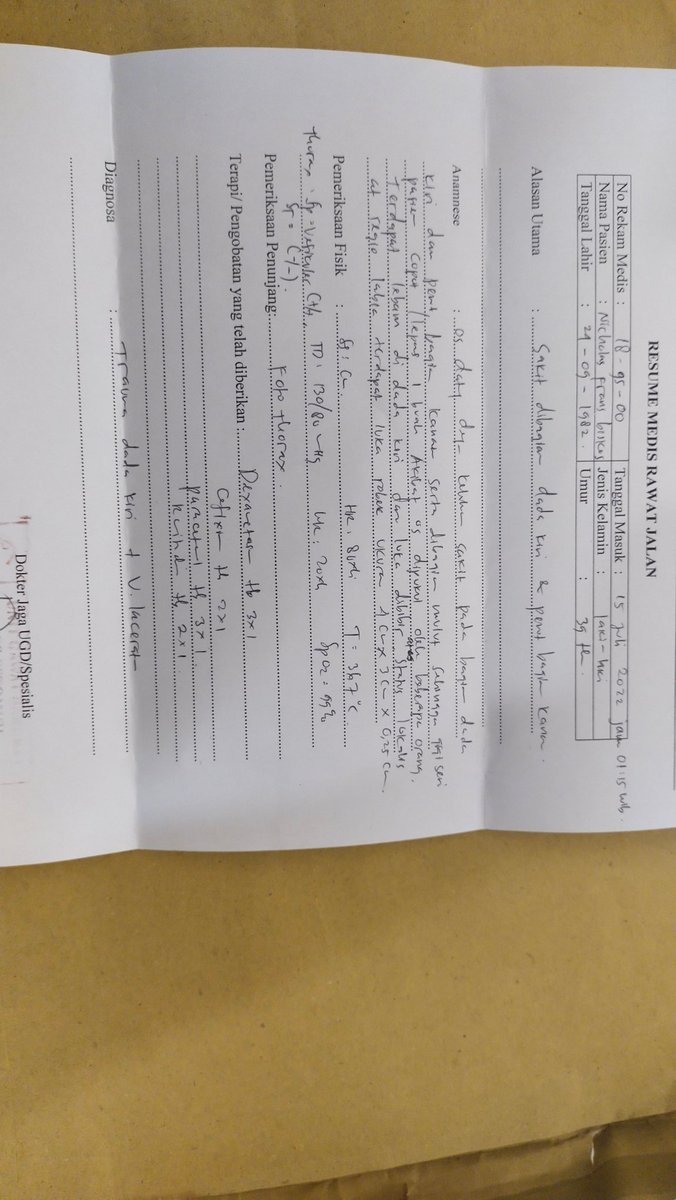 RESUME MEDIS RAWAT JALAN
No Rekam Medis : 18-95-00 Tanggal Masuk : 15 Juli 2022 jam 01:15 wib.
Nama Pasien : Nicholas Frans Jenis Kelamin : laki-laki
Tanggal Lahir : 29-09-1982 Umur : 39 th
Alasan Utama : Sakit dibagian dada kiri & perut bagian kanan.
Anamnese : os datang dg keluhan sakit pada bagian dada
kiri dan perut bagian kanan serta dibagian mulut sehingga gigi seri
pasien copot / lepas 1 buah Akibat os dipukul oleh beberapa orang.
Terdapat lebam di dada kiri dan luka dibibir atas status lokalis
at regio labia terdapat luka robek ukuran 1 cm x 3 cm x 0,25 cm.
Pemeriksaan Fisik : HR : 80x/i T = 36,7 °C
Thorax : Sp = Vesikuler TD : 130/80 mmHg RR : 20x/i SpO2 : 99%
ST = (-/-).
Pemeriksaan Penunjang: Foto thorax.
Terapi/ Pengobatan yang telah diberikan : 3x1
2x1
3x1.
2x1.
Diagnosa : Trauma dada kiri + V. lacerat
Dokter Jaga UGD/Spesialis